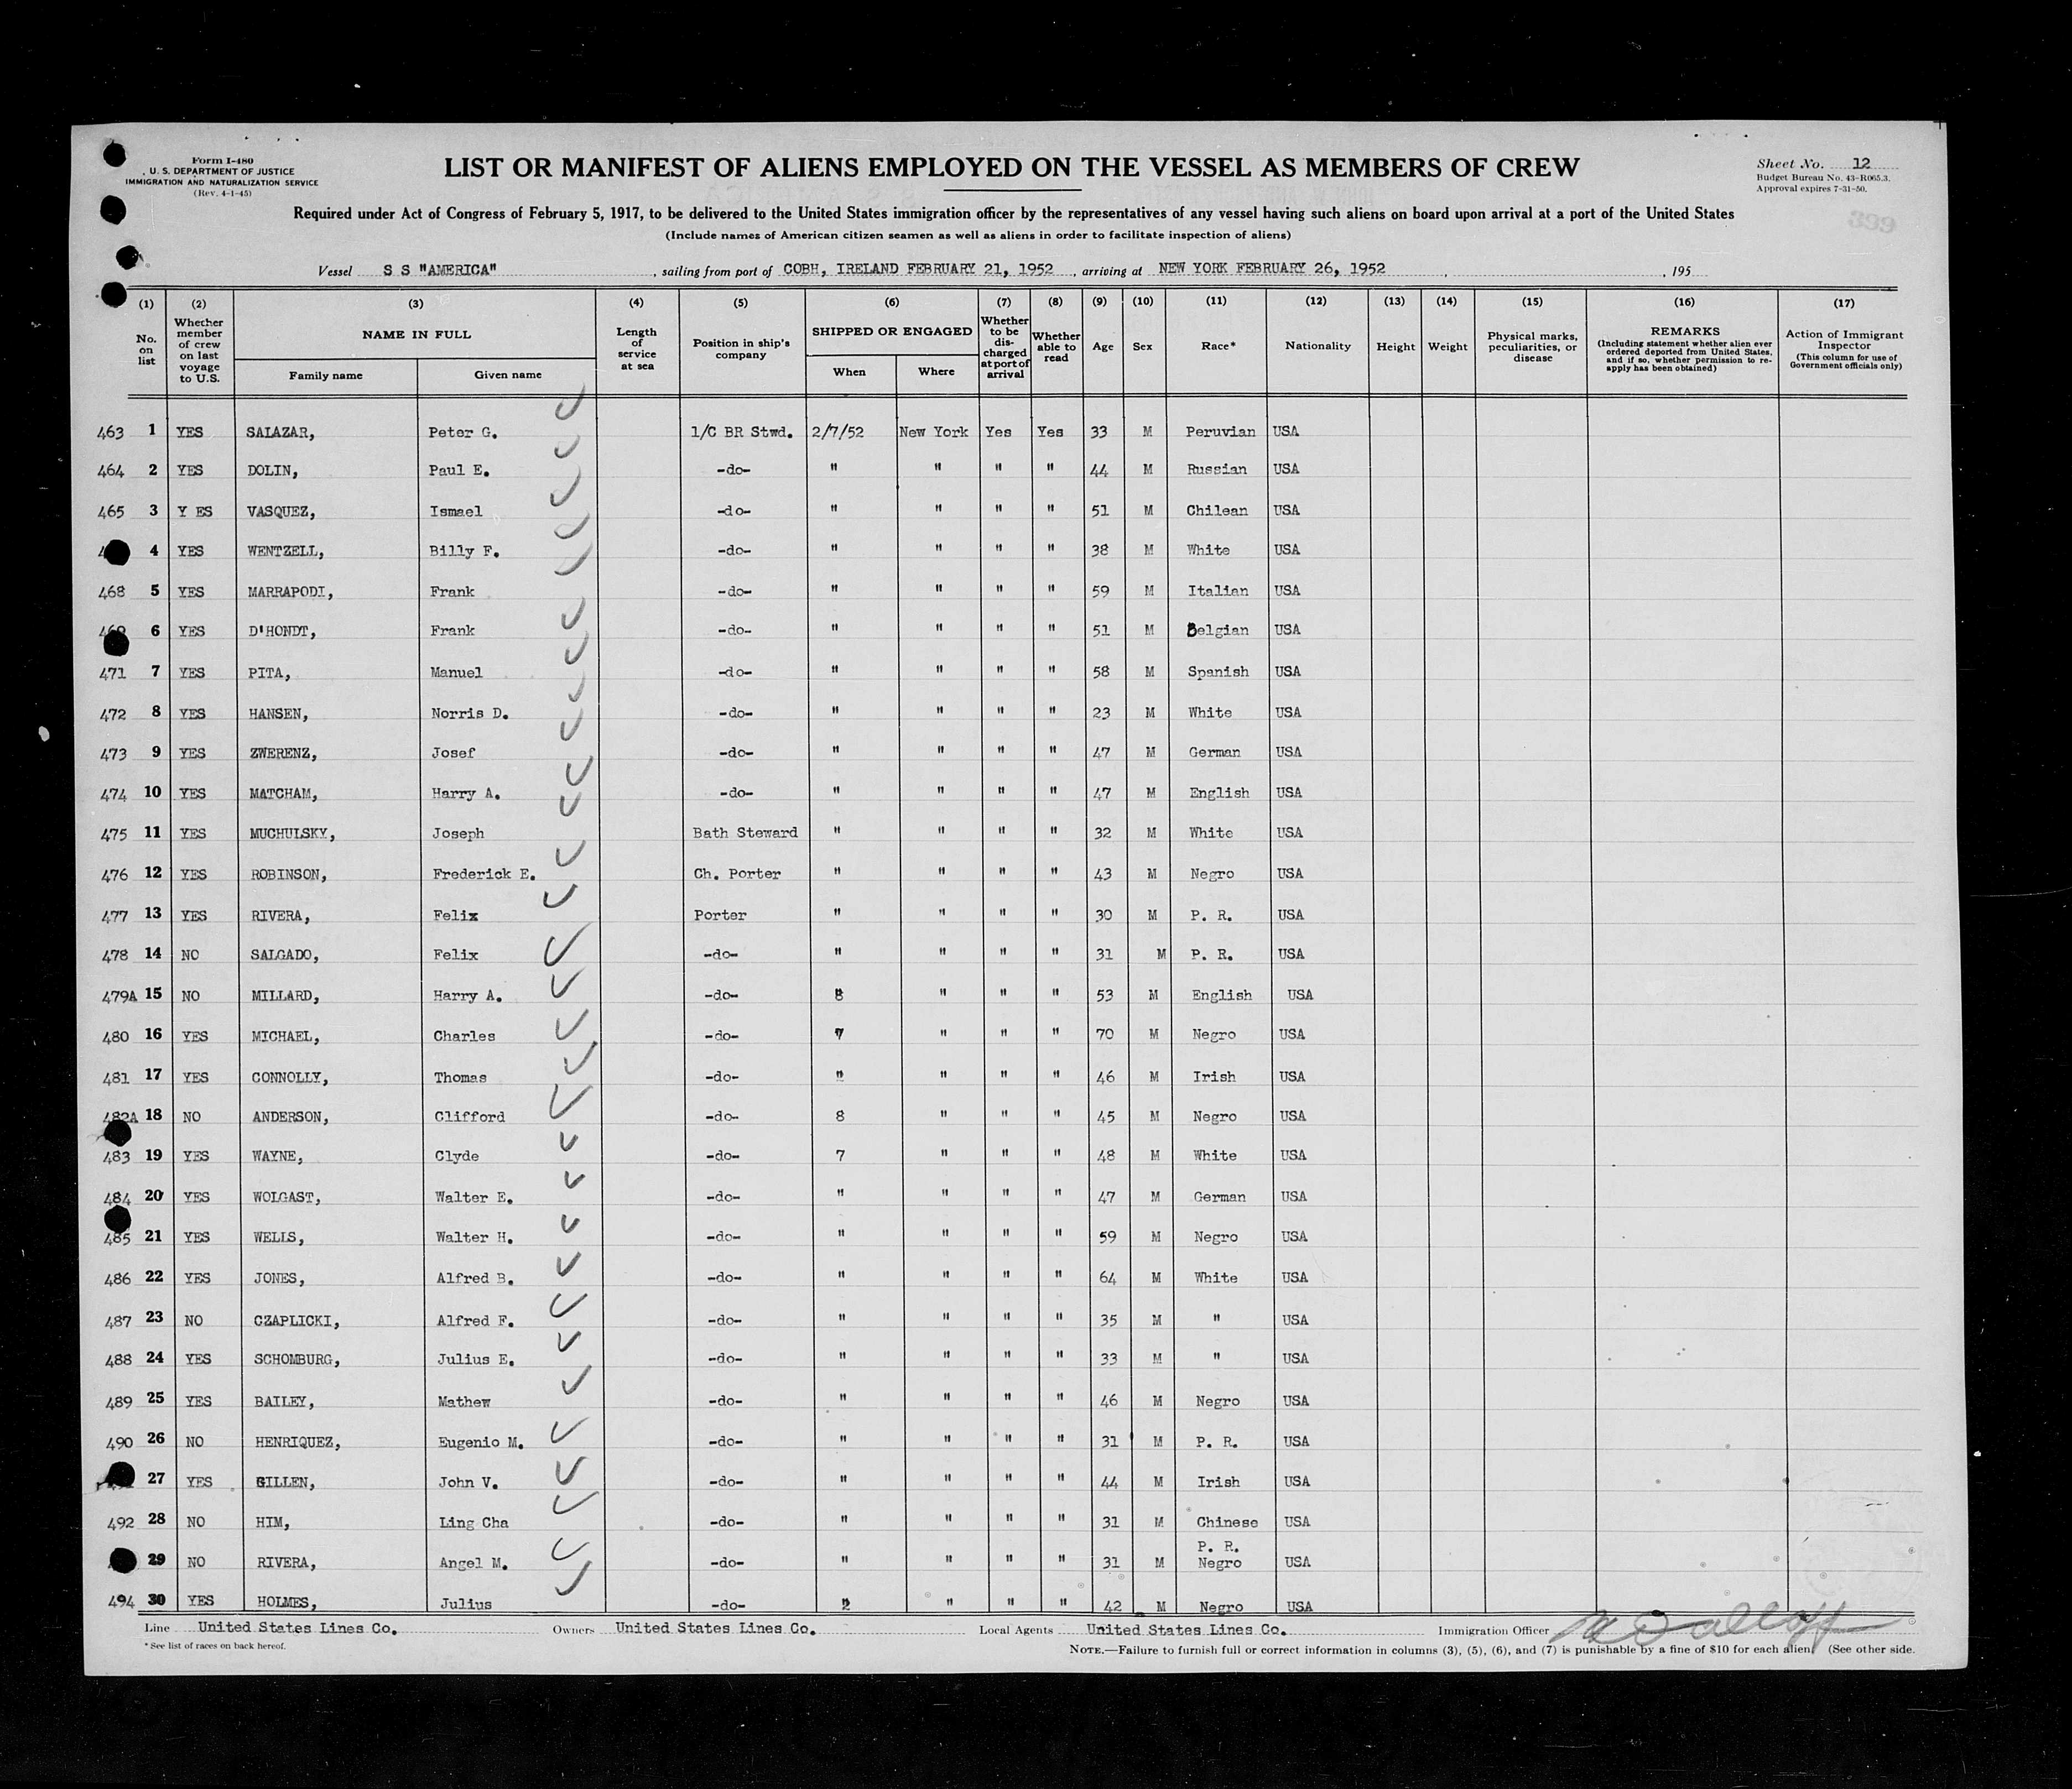 Form I-480
U. S. DEPARTMENT OF JUSTICE
IMMIGRATION AND NATURALIZATION SERVICE
(Rev. 4-1-45)
LIST OR MANIFEST OF ALIENS EMPLOYED ON THE VESSEL AS MEMBERS OF CREW
Sheet No. 12
Budget Bureau No. 43-R065.3.
Approval expires 7-31-50.
Required under Act of Congress of February 5, 1917, to be delivered to the United States immigration officer by the representatives of any vessel having such aliens on board upon arrival at a port of the United States
(Include names of American citizen seamen as well as aliens in order to facilitate inspection of aliens)
Vessel S S "AMERICA" , sailing from port of COBH, IRELAND FEBRUARY 21, 1952 , arriving at NEW YORK FEBRUARY 26, 1952 , 195
(1) (2) (3) (4) (5) (6) (7) (8) (9) (10) (11) (12) (13) (14) (15) (16) (17)
No. on list
Whether member of crew on last voyage to U.S.
NAME IN FULL
Family name Given name
Length of service at sea
Position in ship's company
SHIPPED OR ENGAGED
When Where
Whether to be discharged at port of arrival
Whether able to read
Age
Sex
Race*
Nationality
Height
Weight
Physical marks, peculiarities, or disease
REMARKS
(Including statement whether alien ever ordered deported from United States, and if so, whether permission to re-apply has been obtained)
Action of Immigrant Inspector
(This column for use of Government officials only)
463 1 YES SALAZAR, Peter G. 1/C BR Stwd. 2/7/52 New York Yes Yes 33 M Peruvian USA
464 2 YES DOLIN, Paul E. -do- " " " " 44 M Russian USA
465 3 Y ES VASQUEZ, Ismael -do- " " " " 51 M Chilean USA
4 YES WENTZELL, Billy F. -do- " " " " 38 M White USA
468 5 YES MARRAPODI, Frank -do- " " " " 59 M Italian USA
469 6 YES D'HONDT, Frank -do- " " " " 51 M Belgian USA
471 7 YES PITA, Manuel -do- " " " " 58 M Spanish USA
472 8 YES HANSEN, Norris D. -do- " " " " 23 M White USA
473 9 YES ZWERENZ, Josef -do- " " " " 47 M German USA
474 10 YES MATCHAM, Harry A. -do- " " " " 47 M English USA
475 11 YES MUCHULSKY, Joseph Bath Steward " " " " 32 M White USA
476 12 YES ROBINSON, Frederick E. Ch. Porter " " " " 43 M Negro USA
477 13 YES RIVERA, Felix Porter " " " " 30 M P. R. USA
478 14 NO SALGADO, Felix -do- " " " " 31 M P. R. USA
479A 15 NO MILLARD, Harry A. -do- 8 " " " 53 M English USA
480 16 YES MICHAEL, Charles -do- 7 " " " 70 M Negro USA
481 17 YES CONNOLLY, Thomas -do- " " " " 46 M Irish USA
482A 18 NO ANDERSON, Clifford -do- 8 " " " 45 M Negro USA
483 19 YES WAYNE, Clyde -do- 7 " " " 48 M White USA
484 20 YES WOLGAST, Walter E. -do- " " " " 47 M German USA
485 21 YES WELLS, Walter H. -do- " " " " 59 M Negro USA
486 22 YES JONES, Alfred B. -do- " " " " 64 M White USA
487 23 NO CZAPLICKI, Alfred F. -do- " " " " 35 M " USA
488 24 YES SCHOMBURG, Julius E. -do- " " " " 33 M " USA
489 25 YES BAILEY, Mathew -do- " " " " 46 M Negro USA
490 26 NO HENRIQUEZ, Eugenio M. -do- " " " " 31 M P. R. USA
27 YES GILLEN, John V. -do- " " " " 44 M Irish USA
492 28 NO HIM, Ling Cha -do- " " " " 31 M Chinese USA
29 NO RIVERA, Angel M. -do- " " " " 31 M P. R. Negro USA
494 30 YES HOLMES, Julius -do- " " " 42 M Negro USA
Line United States Lines Co. Owners United States Lines Co. Local Agents United States Lines Co. Immigration Officer
* See list of races on back hereof.
NOTE.—Failure to furnish full or correct information in columns (3), (5), (6), and (7) is punishable by a fine of $10 for each alien. (See other side.